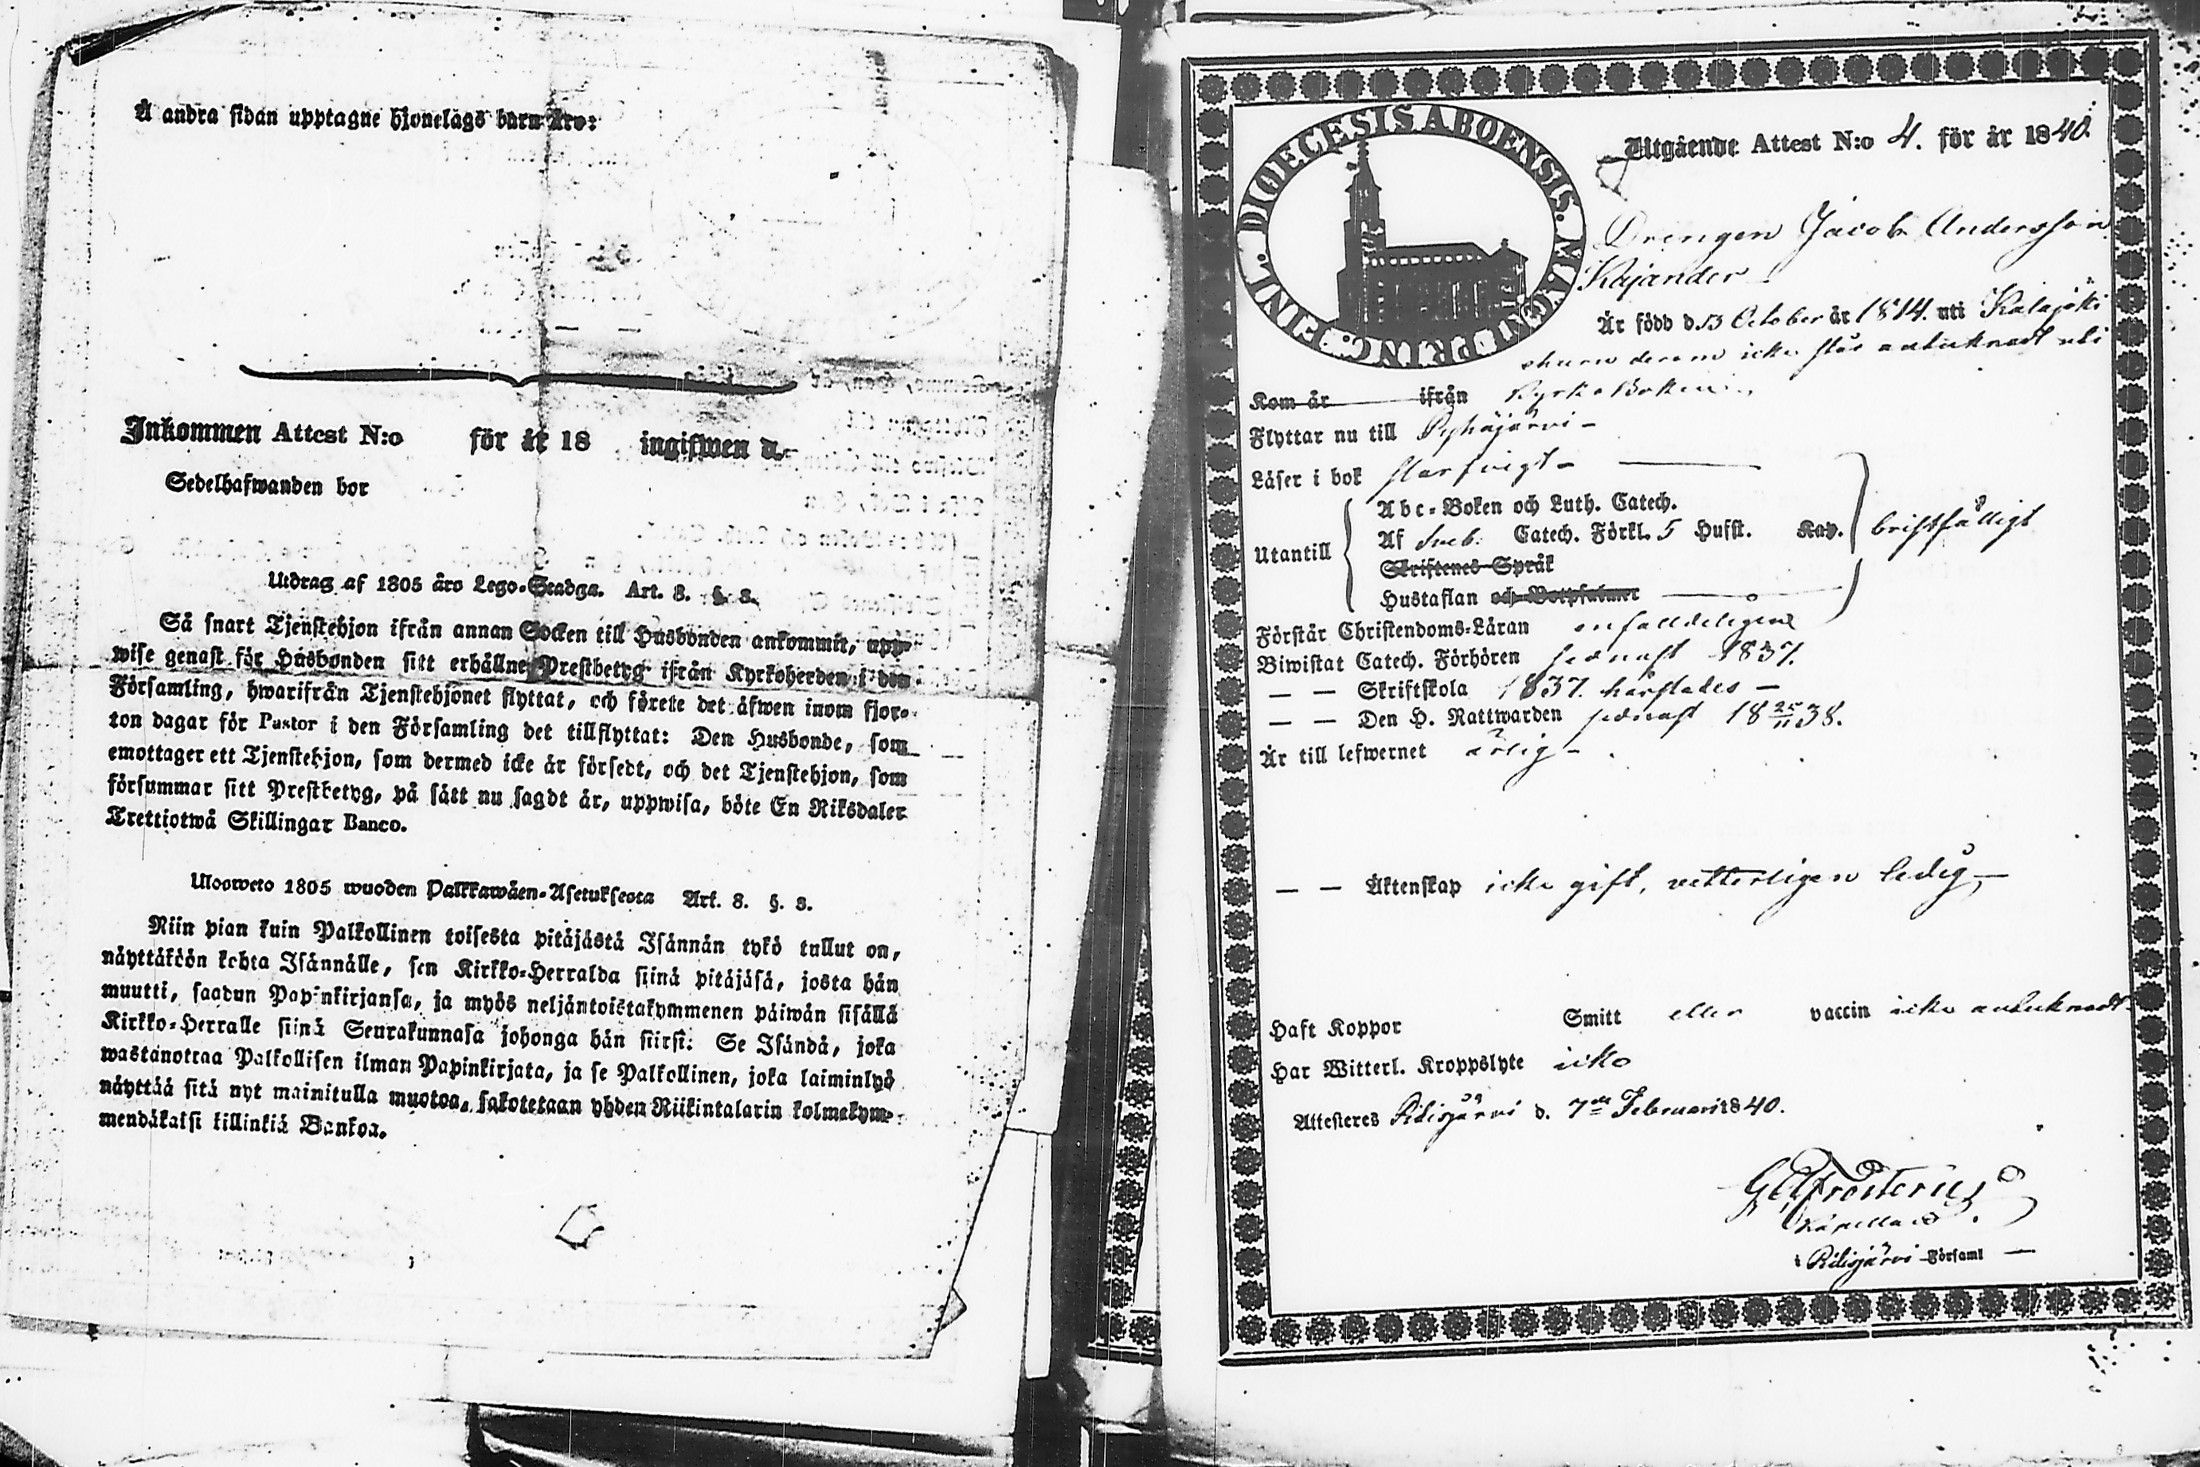 Å andra sidan upptagne hjonelags barn äro:
Inkommen Attest N:o för år 18 ingifwen d.
Sedelhafwanden bor
Utdrag af 1805 års Lego-Stadga. Art. 8. §. 8.
Så snart Tjenstehjon ifrån annan Socken till Husbonden ankommit, upp-
wise genast för Husbonden sitt erhållne Prestbetyg ifrån Kyrkoherden i den
Församling, hwarifrån Tjenstehjonet flyttat, och förete det äfwen inom fjor-
ton dagar för Pastor i den Församling det tillflyttat: Den Husbonde, som
emottager ett Tjenstehjon, som dermed icke är försedt, och det Tjenstehjon, som
försummar sitt Prestbetyg, på sätt nu sagdt är, uppwisa, böte En Riksdaler
Trettiotwå Skillingar Banco.
Ulosweto 1805 wuoden Palkkawäen-Asetuksesta Art. 8. §. 8.
Niin pian kuin Palkollinen toisesta pitäjästä Isännän tykö tullut on,
näyttäköön kohta Isännälle, sen Kirkko-Herralda siinä pitäjäsä, josta hän
muutti, saadun Papinkirjansa, ja myös neljäntoistakymmenen päiwän sisällä
Kirkko-Herralle siinä Seurakunnasa johonga hän siirsi: Se Isändä, joka
wastanottaa Palkollisen ilman Papinkirjata, ja se Palkollinen, joka laiminlyö
näyttää sitä nyt mainitulla muotoa, sakotetaan yhden Riikintalarin kolmekym-
mendäkaksi killinkiä Bankoa.
DIOECESIS ABOENSIS. MAGNI PRINC. FINL.
Utgående Attest N:o 4. för år 1840.
Drengen Jacob Andersson
Kajander
Är född d. 13 October år 1814. uti Kalajoki
ehuru derom icke står anteknadt uti
Kom år ifrån Kyrkoboken
Flyttar nu till Pyhäjärvi
Läser i bok
Abc-Boken och Luth. Catech.
Utantill Af Sveb. Catech. Förkl. 5 Hufst. Kap. bristfälligt
Skriftenes Språk
Hustaflan och Botpsalmer
Förstår Christendoms-Läran enfalldeligen
Biwistat Catech. Förhören sednast 1837.
— — Skriftskola 1837. härstädes —
— — Den H. Nattwarden sednast 18 25/11 38.
Är till lefwernet ärlig
— — Äktenskap icke gift, vetterligen ledig,—
Haft Koppor Smitt eller vaccin icke anteknadt
Har Witterl. Kroppslyte icke
Attesteres Pidisjärvi d. 7de Februari 1840.
Frosterus
Kapellan
i Pidisjärvi Församl —